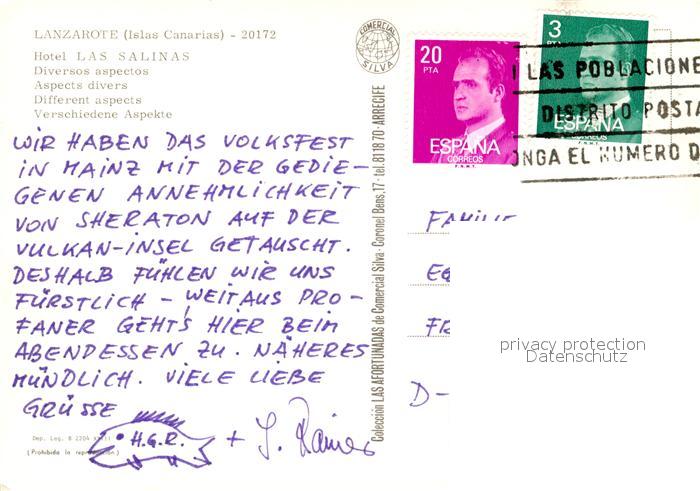 LANZAROTE (Islas Canarias) - 20172
Hotel LAS SALINAS
Diversos aspectos
Aspects divers
Different aspects
Verschiedene Aspekte
WIR HABEN DAS VOLKSFEST
IN MAINZ MIT DER GEDIE-
GENEN ANNEHMLICHKEIT
VON SHERATON AUF DER
VULKAN-INSEL GETAUSCHT.
DESHALB FÜHLEN WIR UNS
FÜRSTLICH – WEITAUS PRO-
FANER GEHTS HIER BEIM
ABENDESSEN ZU. NÄHERES
MÜNDLICH. VIELE LIEBE
GRÜSSE
H.G.R. + J. Rainer
Dep. Leg. B 2204
(Prohibida la reproducción)
COMERCIAL SILVA
Colección LAS AFORTUNADAS de Comercial Silva · Coronel Bens, 17 · tel. 81 18 70 · ARRECIFE
20 PTA
ESPAÑA
CORREOS
F.N.M.T.
3 PTA
ESPAÑA
LAS POBLACIONE
DISTRITO POSTA
ONGA EL NUMERO D
FAMILIE
FR
D-
privacy protection
Datenschutz